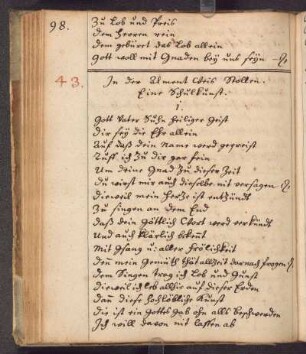 98.
Zu Lob und Preis
dem Herren rein
dem gebüret das Lob allein
Gott woll mit Gnaden bey uns seyn
43.
In der Ament Weis Stollen.
Eine Schulkunst.
1
Gott Vater Sohn Heiliger Geist
Dir sey die Ehr allein
Auf daß dein Name werd gepreist
Ruff ich zu dir gar fein
Um deine Gnad zu dieser Zeit
Du wirst mir auch dieselbe nit versagen
dieweil mein Hertz ist entzündt
Zu singen an dem End
daß dein Göttlich Wort werd verkündt
Und auch klärlich bekent
Mit Gsang u. aller Frölichkeit
den mein Gemüth that allzeit darnach fragen
dem Singen trag ich Lob und Gunst
dieweil ich leb allhie auf dieser Erden
dan diese hochlöbliche Kunst
die ist ein Gottes Gab ohn alls beschwerden
Ich will davon nit lassen ab